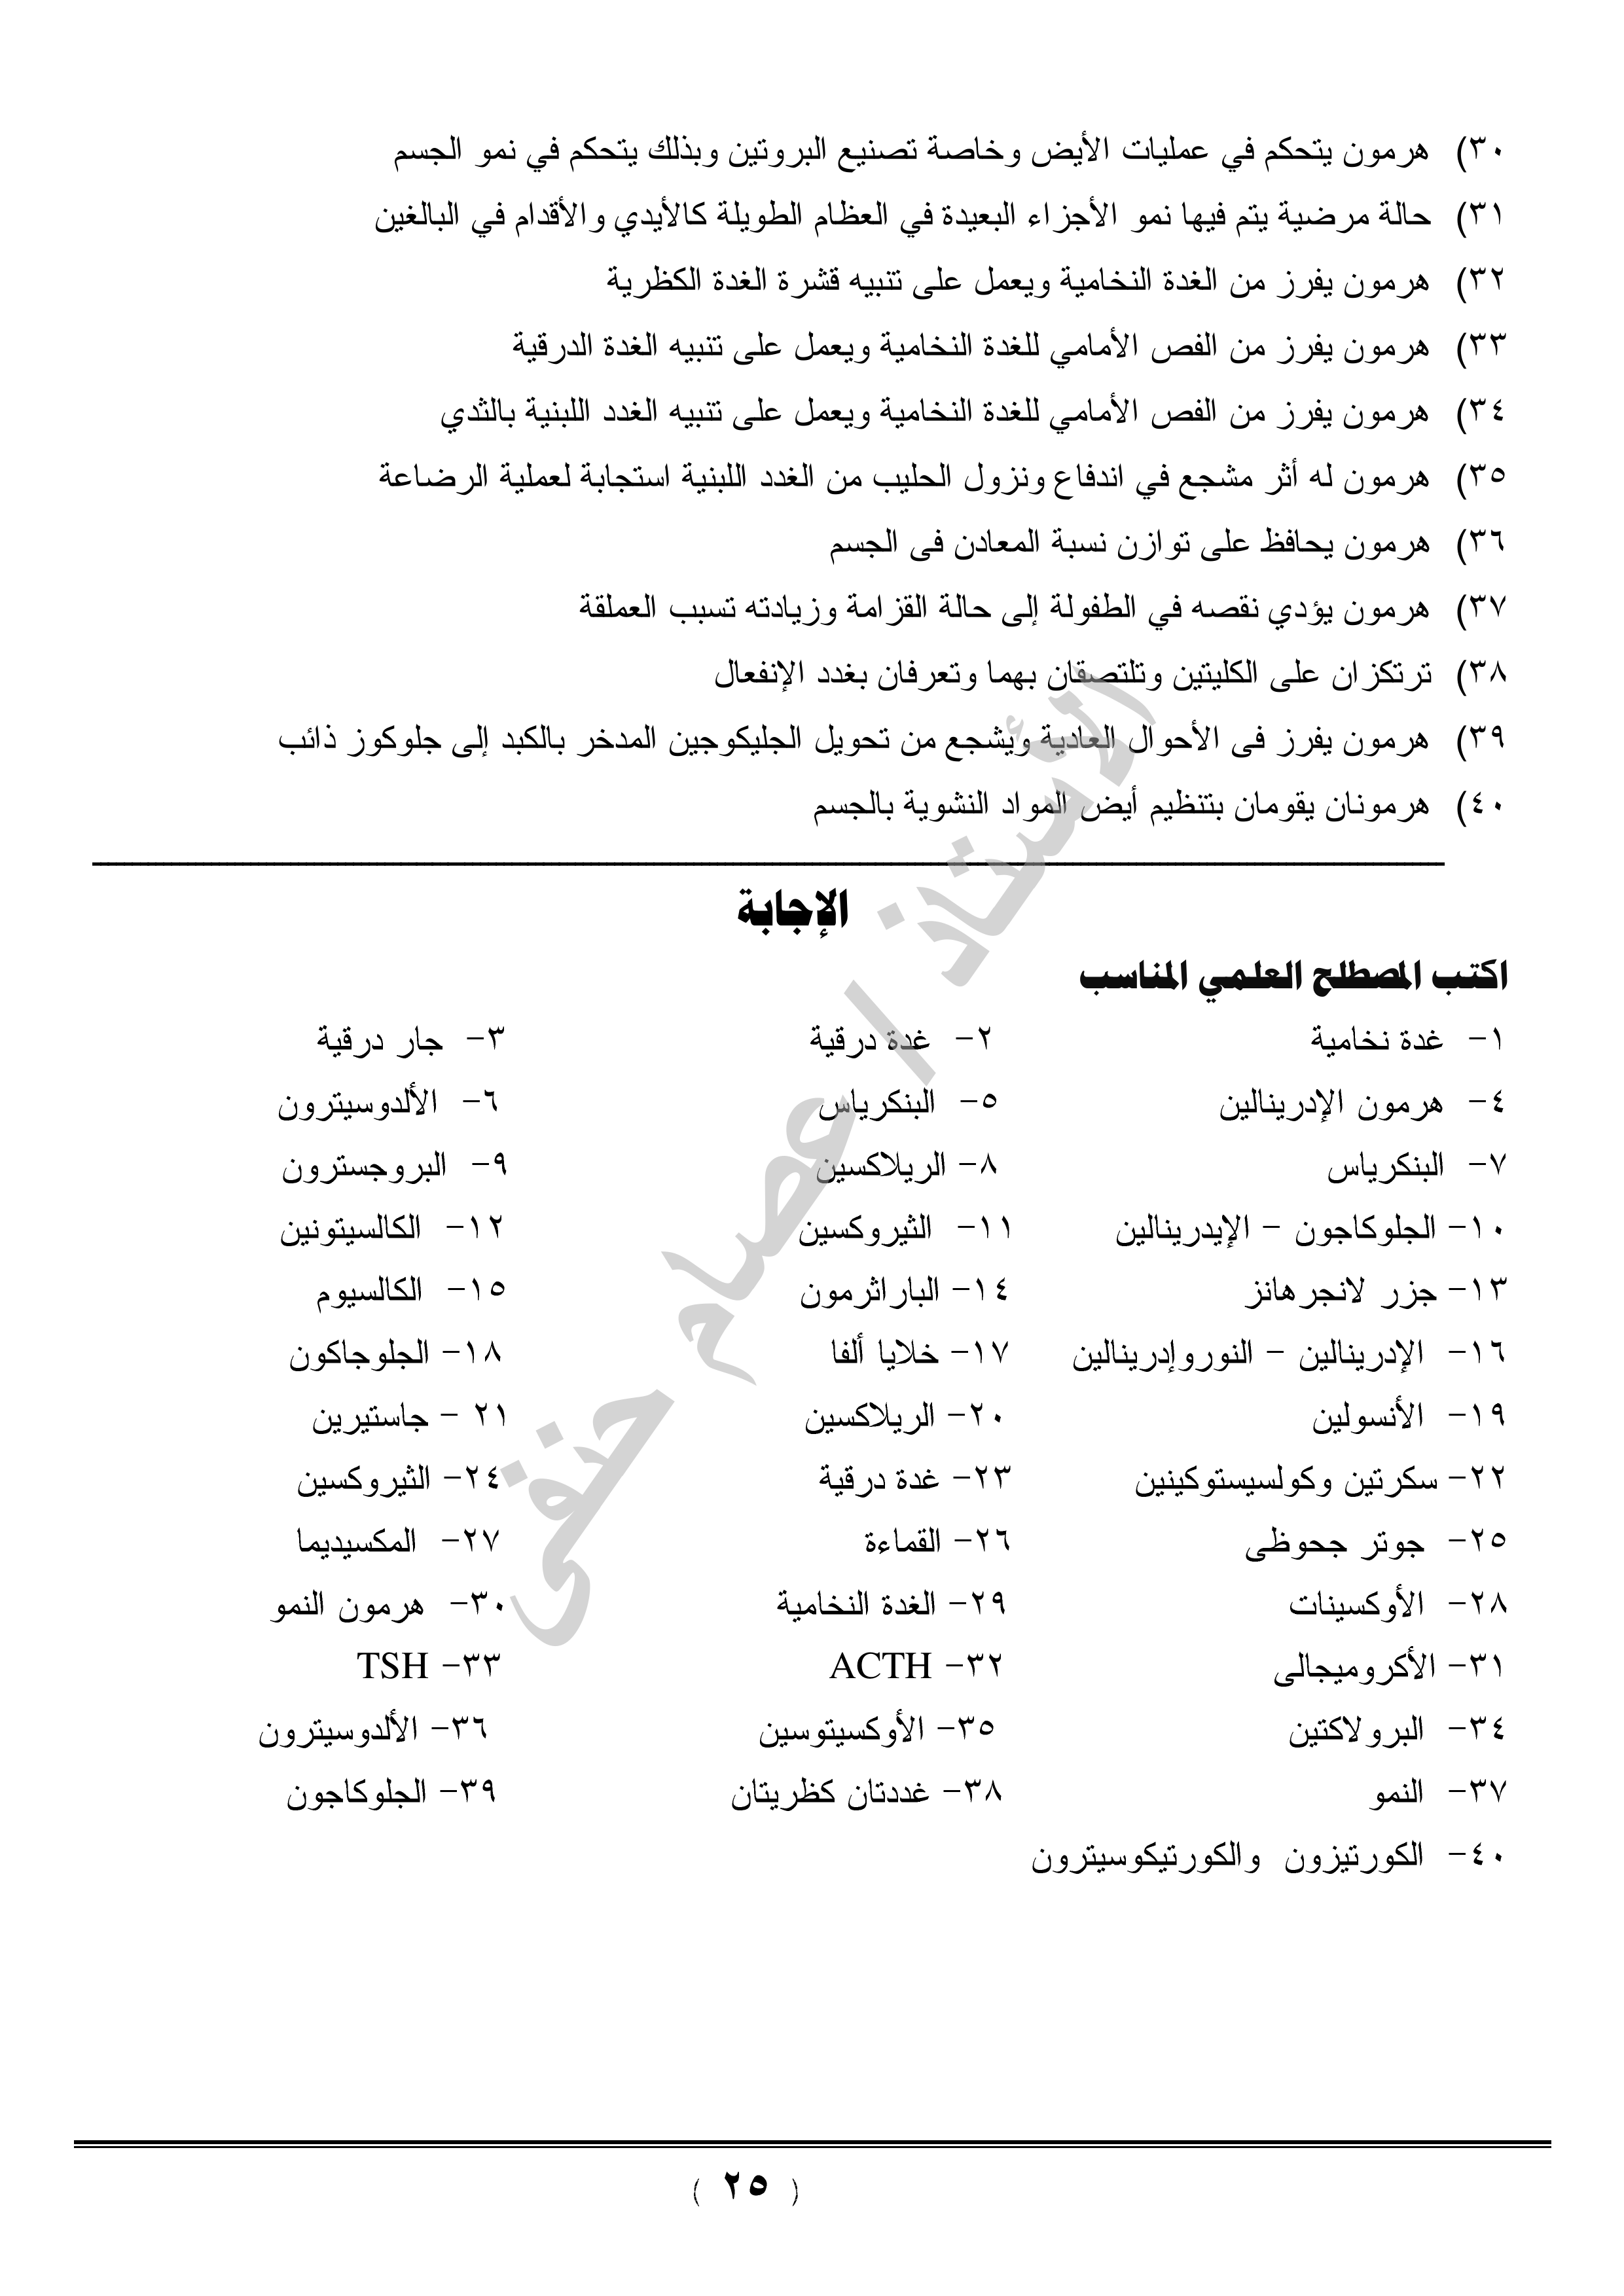 ٣٠) هرمون يتحكم في عمليات الأيض وخاصة تصنيع البروتين وبذلك يتحكم في نمو الجسم
٣١) حالة مرضية يتم فيها نمو الأجزاء البعيدة في العظام الطويلة كالأيدي والأقدام في البالغين
٣٢) هرمون يفرز من الغدة النخامية ويعمل على تنبيه قشرة الغدة الكظرية
٣٣) هرمون يفرز من الفص الأمامي للغدة النخامية ويعمل على تنبيه الغدة الدرقية
٣٤) هرمون يفرز من الفص الأمامي للغدة النخامية ويعمل على تنبيه الغدد اللبنية بالثدي
٣٥) هرمون له أثر مشجع في اندفاع ونزول الحليب من الغدد اللبنية استجابة لعملية الرضاعة
٣٦) هرمون يحافظ على توازن نسبة المعادن فى الجسم
٣٧) هرمون يؤدي نقصه في الطفولة إلى حالة القزامة وزيادته تسبب العملقة
٣٨) ترتكزان على الكليتين وتلتصقان بهما وتعرفان بغدد الإنفعال
٣٩) هرمون يفرز فى الأحوال العادية ويشجع من تحويل الجليكوجين المدخر بالكبد إلى جلوكوز ذائب
٤٠) هرمونان يقومان بتنظيم أيض المواد النشوية بالجسم
الإجابة
اكتب المصطلح العلمي المناسب
١- غدة نخامية ٢- غدة درقية ٣- جار درقية
٤- هرمون الإدرينالين ٥- البنكرياس ٦- الألدوسيترون
٧- البنكرياس ٨- الريلاكسين ٩- البروجسترون
١٠- الجلوكاجون - الإيدرينالين ١١- الثيروكسين ١٢- الكالسيتونين
١٣- جزر لانجرهانز ١٤- الباراثرمون ١٥- الكالسيوم
١٦- الإدرينالين - النوروإدرينالين ١٧- خلايا ألفا ١٨- الجلوجاكون
١٩- الأنسولين ٢٠- الريلاكسين ٢١ - جاستيرين
٢٢- سكرتين وكولسيستوكينين ٢٣- غدة درقية ٢٤- الثيروكسين
٢٥- جوتر جحوظى ٢٦- القماءة ٢٧- المكسيديما
٢٨- الأوكسينات ٢٩- الغدة النخامية ٣٠- هرمون النمو
٣١- الأكروميجالى ٣٢- ACTH ٣٣- TSH
٣٤- البرولاكتين ٣٥- الأوكسيتوسين ٣٦- الألدوسيترون
٣٧- النمو ٣٨- غددتان كظريتان ٣٩- الجلوكاجون
٤٠- الكورتيزون والكورتيكوسيترون
الأستاذ / عصام حنفى
( ٢٥ )